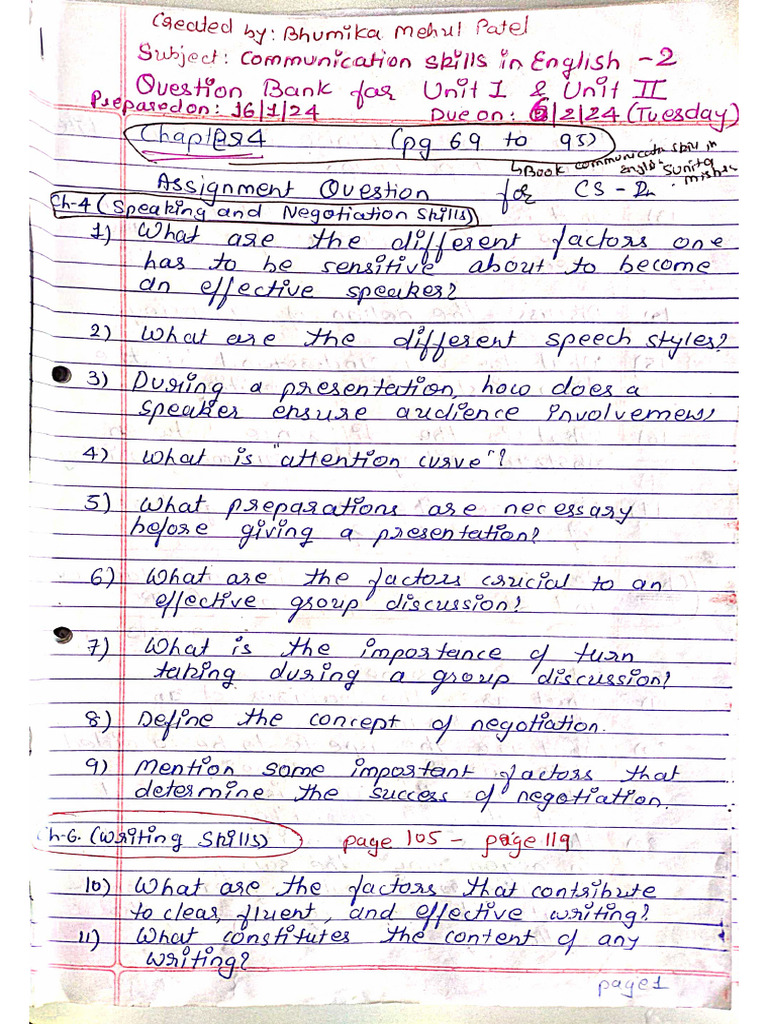 Created by: Bhumika Mehul Patel
Subject: Communication skills in English -2
Question Bank for Unit I & Unit II
Prepared on: 16/1/24 Due on: 6/2/24 (Tuesday)
Chapter 4 (pg 69 to 95)
↳ Book communicate skill in
Assignment Question for CS - II
Sunita
Ch-4 (Speaking and Negotiation Skills)
1) What are the different factors one
has to be sensitive about to become
an effective speaker?
2) What are the different speech styles?
3) During a presentation, how does a
speaker ensure audience involvement
4) What is "attention curve"?
5) What preparations are necessary
before giving a presentation?
6) What are the factors crucial to an
effective group discussion?
7) What is the importance of turn
taking during a group discussion?
8) Define the concept of negotiation.
9) Mention some important factors that
determine the success of negotiation.
Ch-6. (Writing Skills) page 105 - page 119
10) What are the factors that contribute
to clear, fluent, and effective writing?
11) What constitutes the content of any
writing?
page 1